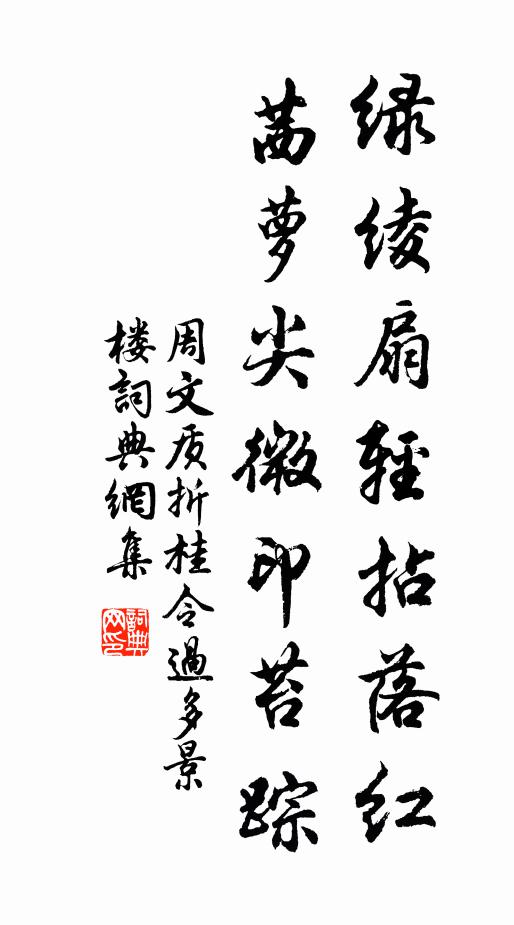 绿绫扇轻拈落红
茜萝尖微印苔踪
周文质折桂令過多景
楼詞典網集
詞典网印